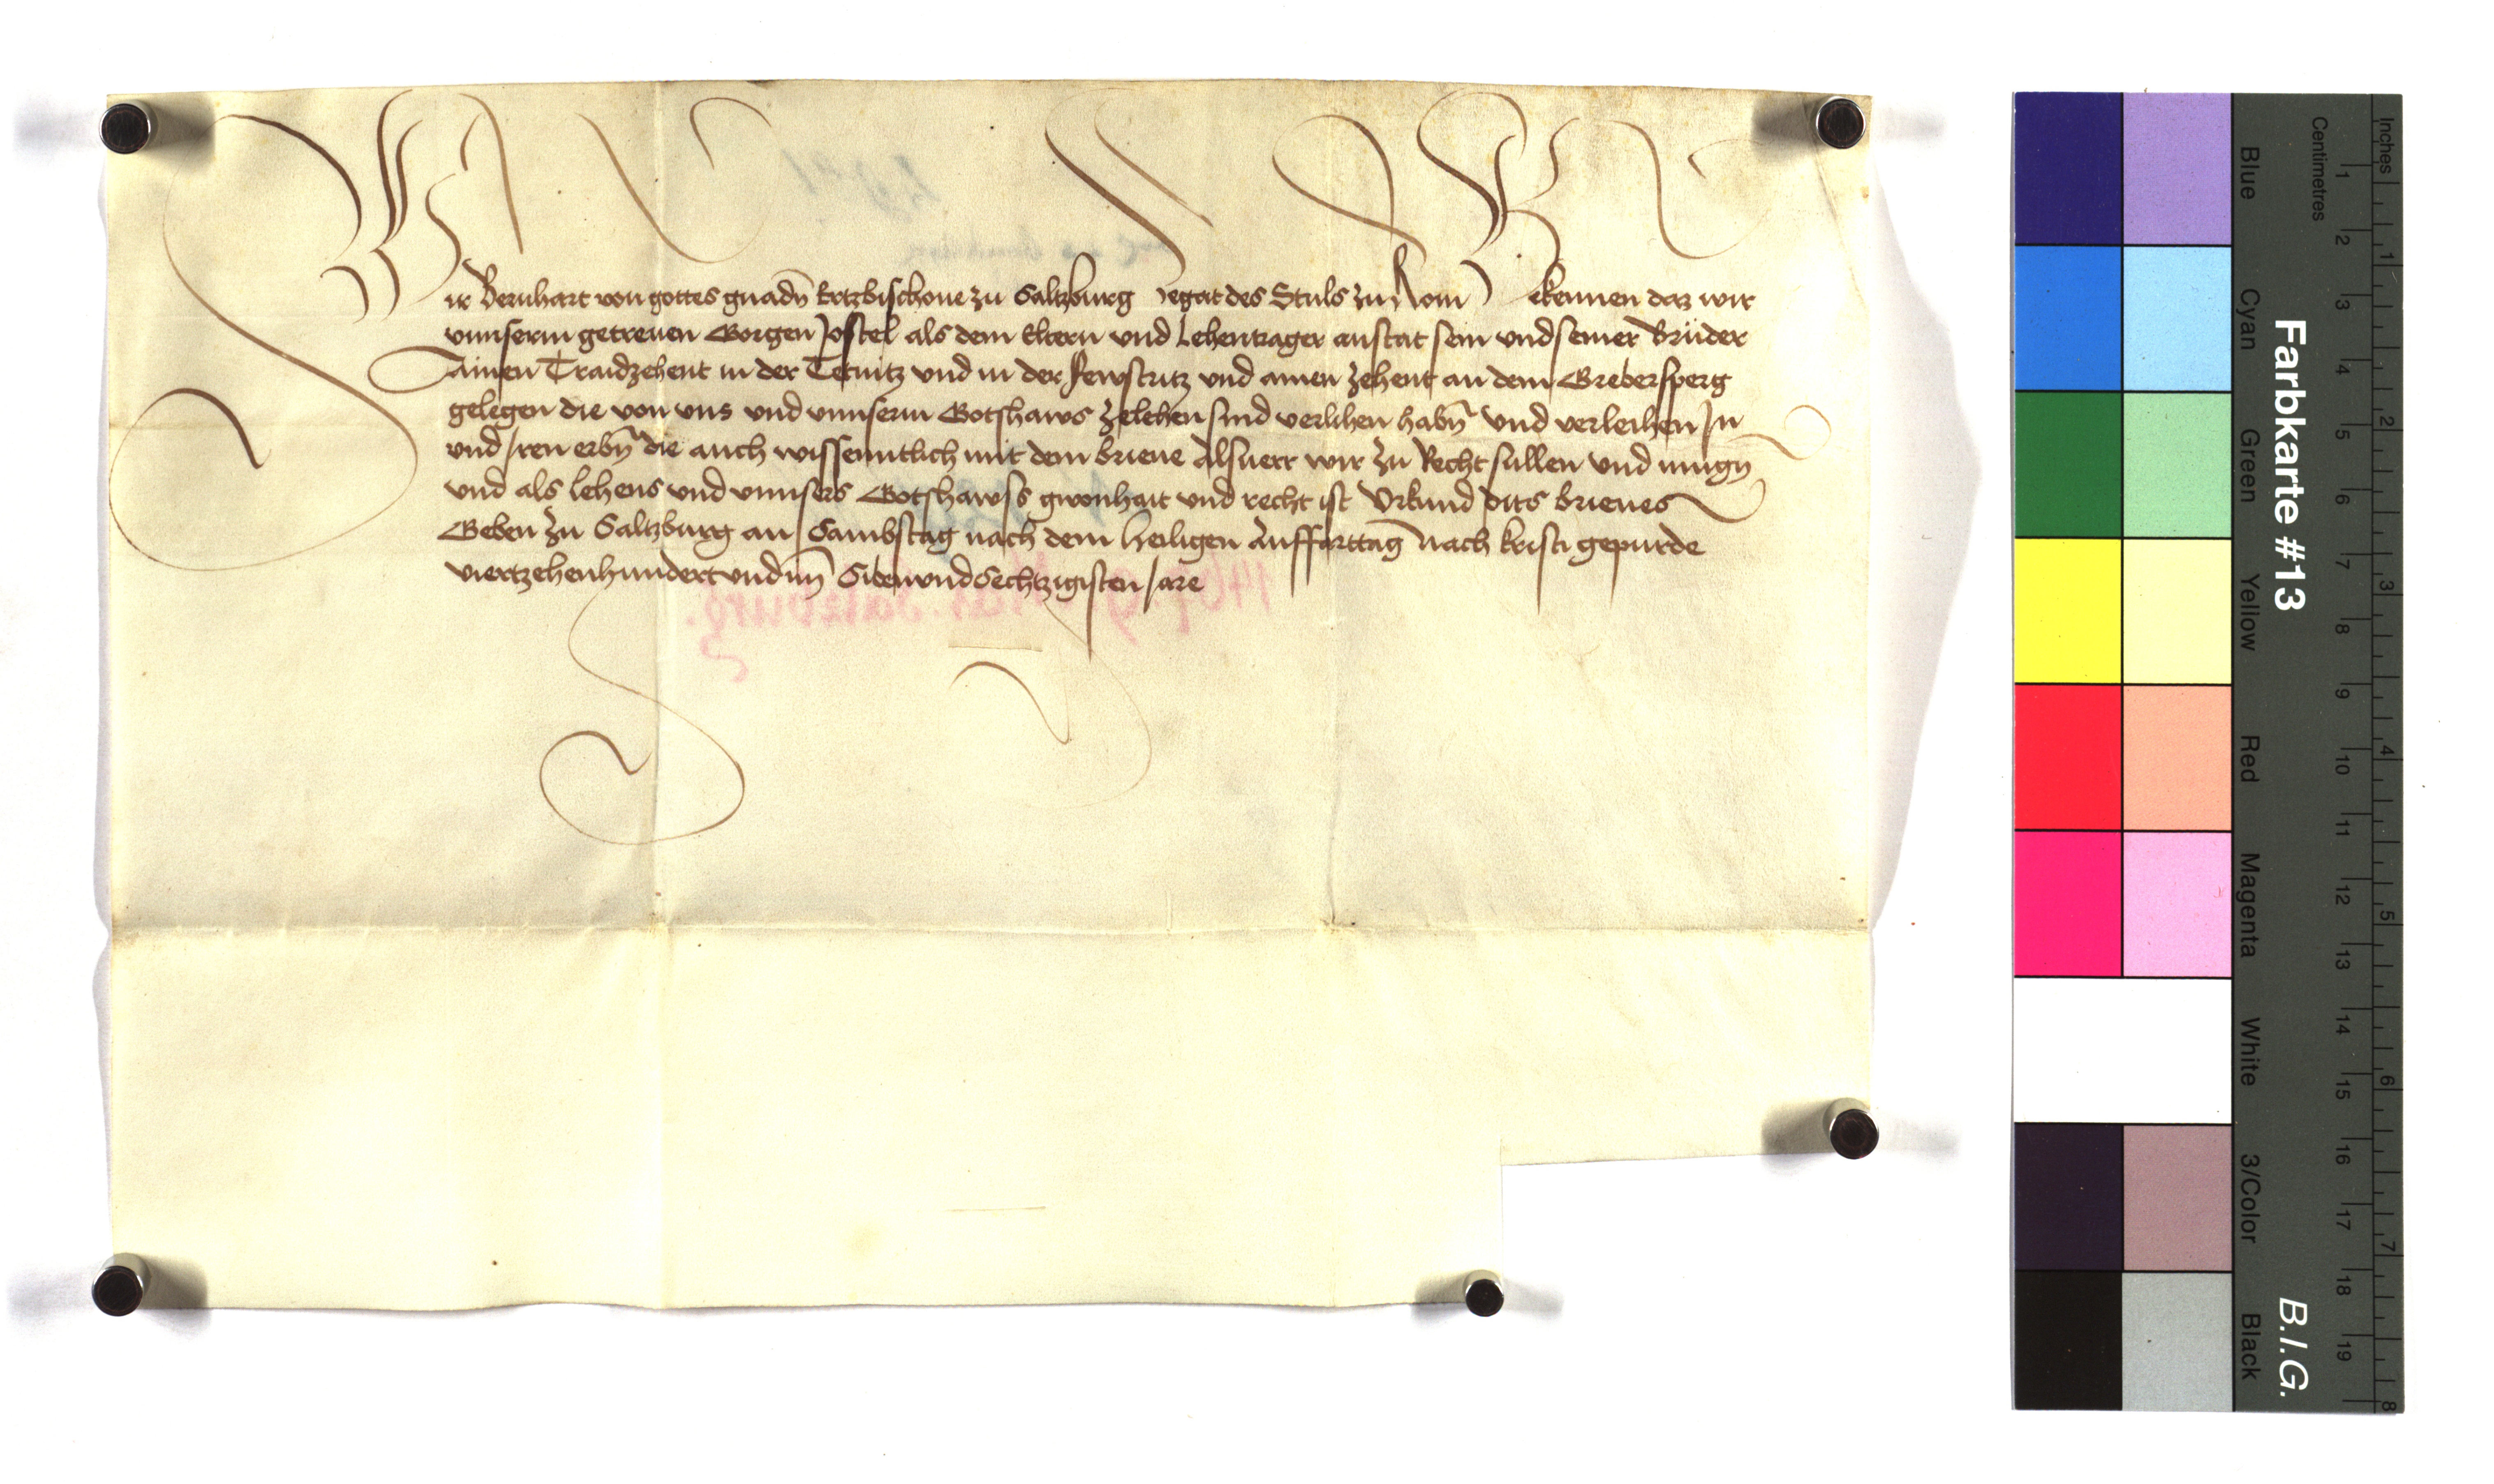 Wir Bernhart von gottes gnadn̄ Ertzbischoue zu Saltzburg Legat des Stuls zu Rom Bekennen daz wir
vnnserm getreuen Gorgen Jostel als dem Eltern vnd Lehentrager anstat sein vnd seiner Brüder
Ainen Traidzehent in der Ternitz vnd in der Fewstritz vnd ainen zehent an dem Grebersperg
gelegen die von vns vnd vnnserm Gotshaws zelehen sind verlihen habn̄ vnd verleihen In
vnd Iren erbn̄ die auch wissenntlich mit dem brieue Alsuerr wir zu Recht sullen vnd mugn̄
vnd als lehens vnd vnnsers Gotshawss gwonhait vnd recht ist Vrkund dits brieues
Geben zu Saltzburg an Sambstag nach dem heiligen Auffarttag Nach kristi gepurde
viertzehenhundert vnd im̄ Sibenvndsechtzigisten Jare
1467. 9. Mai. Salzburg.
Farbkarte #13
B.I.G.
Centimetres
Inches
Blue
Cyan
Green
Yellow
Red
Magenta
White
3/Color
Black
1 2 3 4 5 6 7 8 9 10 11 12 13 14 15 16 17 18 19
1 2 3 4 5 6 7 8